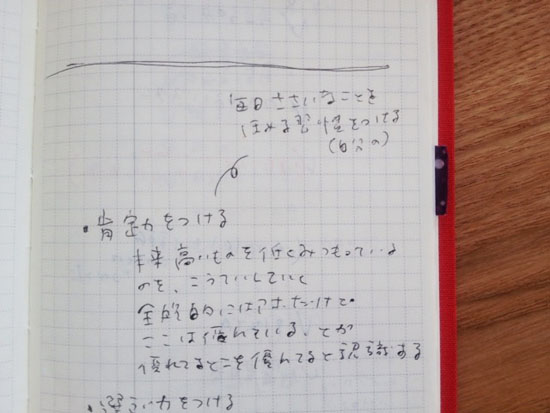 毎日ささいなことを
ほめる習慣をつける
(自分の)
・肯定力をつける
本来高いものを低くみつもっている
のを、こうていしていく
ここは優れている、とか
優れてるとこを優れてると認識する
力をつける